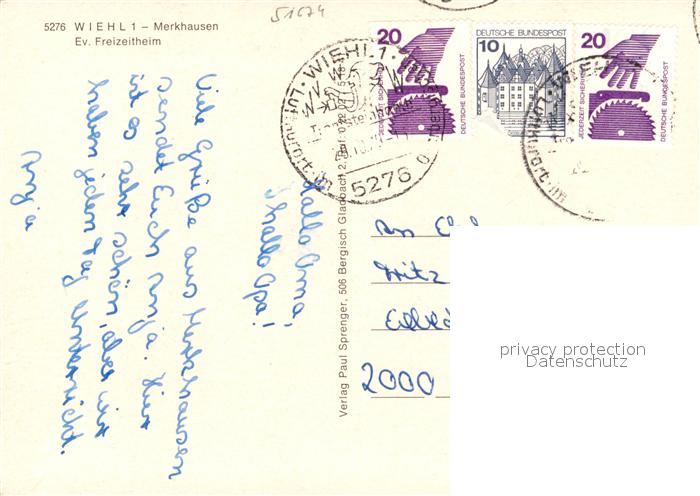 51674
5276 WIEHL 1 – Merkhausen
Ev. Freizeitheim
20
JEDERZEIT SICHERHEIT
DEUTSCHE BUNDESPOST
DEUTSCHE BUNDESPOST
10
20
JEDERZEIT SICHERHEIT
DEUTSCHE BUNDESPOST
WIEHL 1
5276
Luftkurort im
Hallo Oma,
Hallo Opa!
Viele Grüße aus Merkhausen
sendet Euch Anja. Hier
ist es sehr schön, aber wir
haben jeden Tag Unterricht.
Anja
Verlag Paul Sprenger, 506 Bergisch Gladbach 2,
2000
privacy protection
Datenschutz